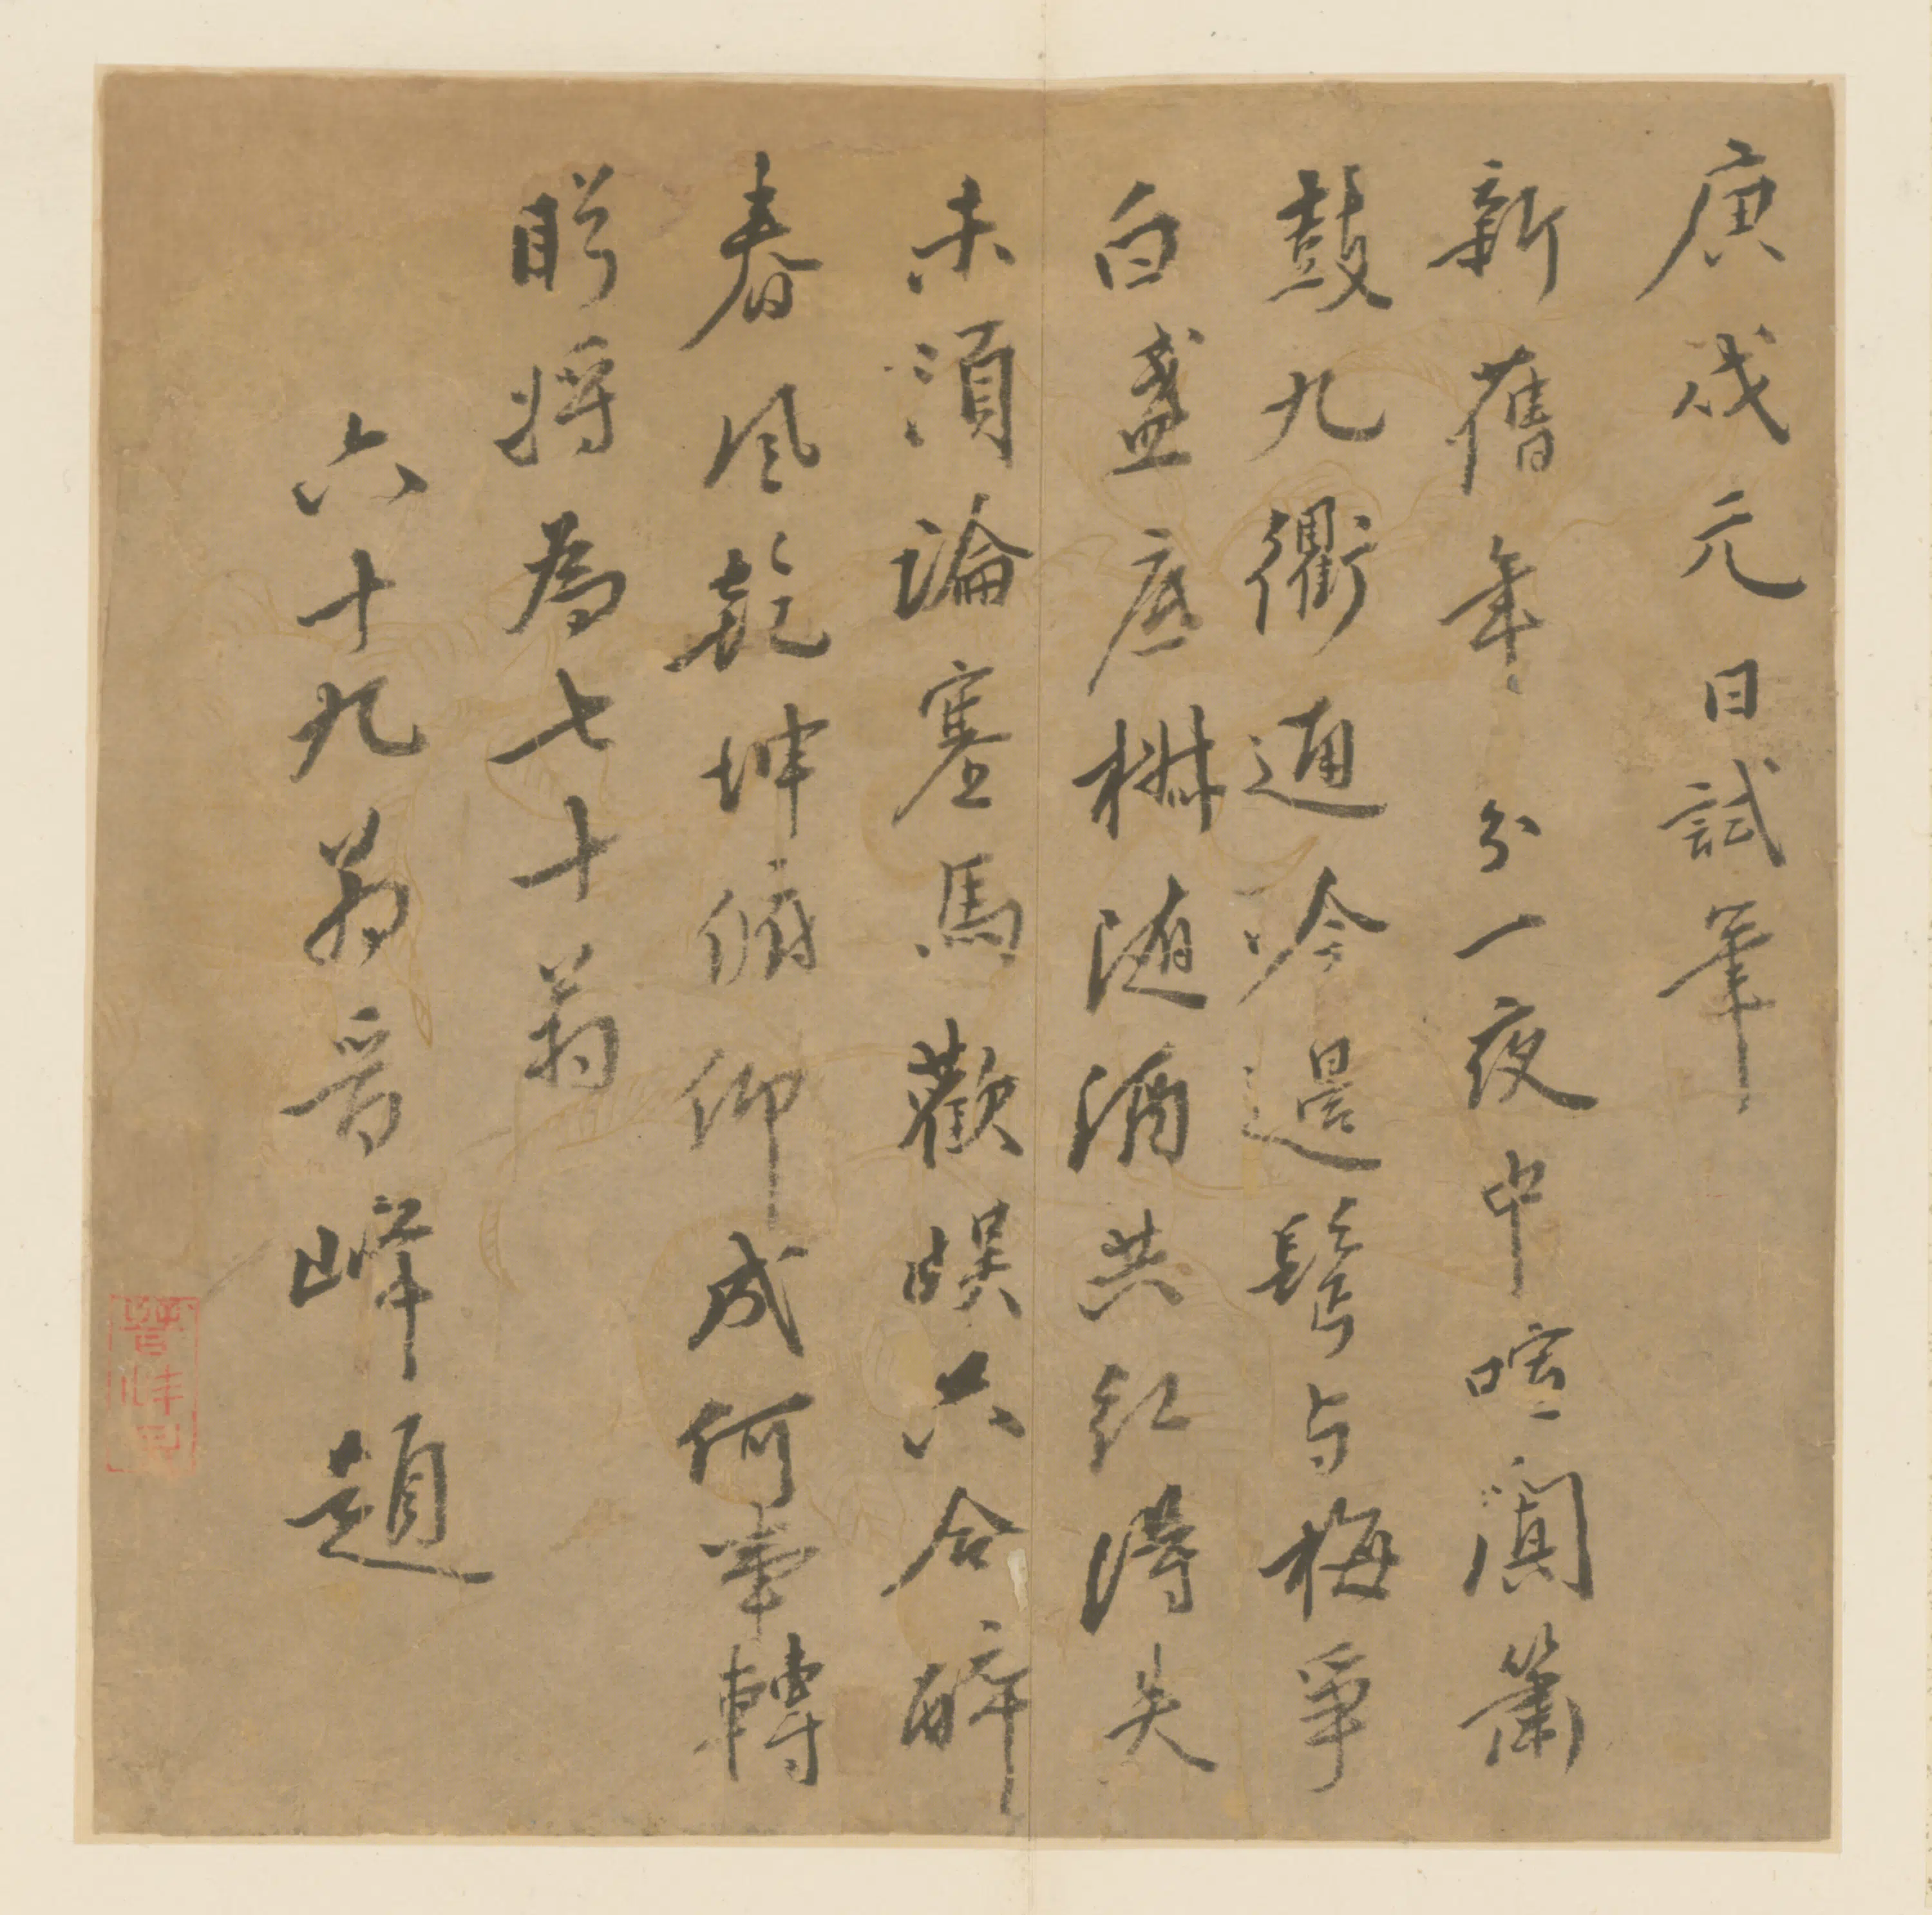 庚戌元日試筆
新舊年分一夜中喧闐簫
鼓九衢通吟邊鬢与梅爭
白盞底椒随酒共紅得失
未須論塞馬歡娛六合醉
春風乾坤俯仰成何事轉
眄将為七十翁
六十九翁晋峰題